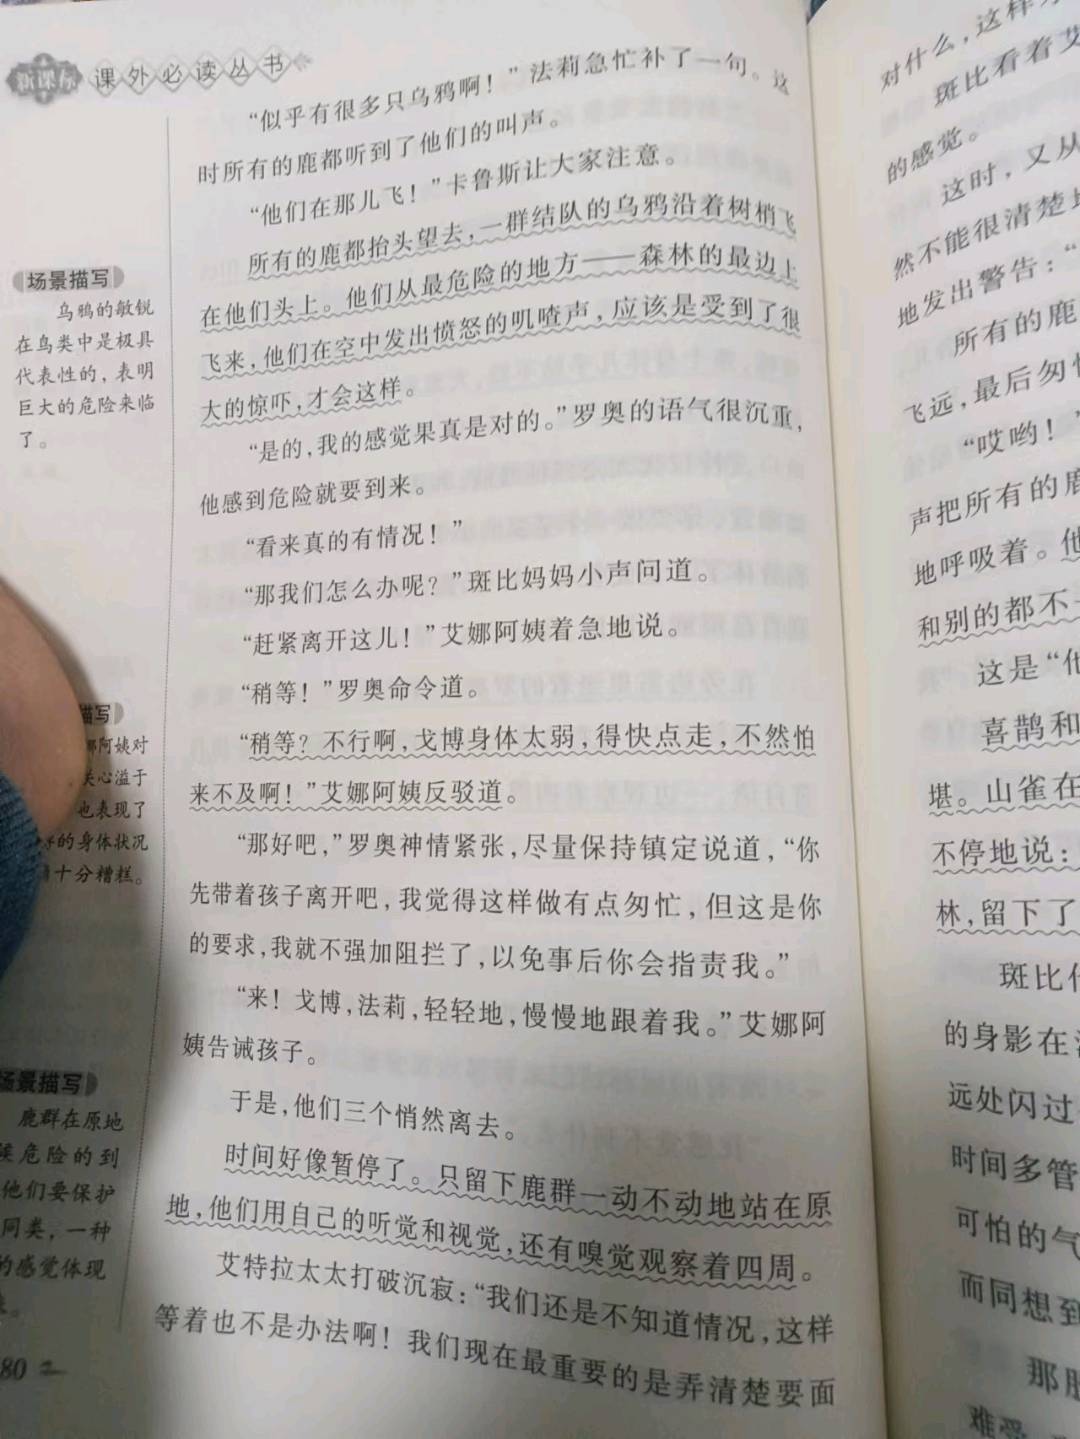 新课标 课外必读丛书
“似乎有很多只乌鸦啊！”法莉急忙补了一句。这
时所有的鹿都听到了他们的叫声。
“他们在那儿飞！”卡鲁斯让大家注意。
所有的鹿都抬头望去，一群结队的乌鸦沿着树梢飞
在他们头上。他们从最危险的地方——森林的最边上
飞来，他们在空中发出愤怒的叽喳声，应该是受到了很
大的惊吓，才会这样。
“是的，我的感觉果真是对的。”罗奥的语气很沉重，
他感到危险就要到来。
“看来真的有情况！”
“那我们怎么办呢？”斑比妈妈小声问道。
“赶紧离开这儿！”艾娜阿姨着急地说。
“稍等！”罗奥命令道。
“稍等？不行啊，戈博身体太弱，得快点走，不然怕
来不及啊！”艾娜阿姨反驳道。
“那好吧，”罗奥神情紧张，尽量保持镇定说道，“你
先带着孩子离开吧，我觉得这样做有点匆忙，但这是你
的要求，我就不强加阻拦了，以免事后你会指责我。”
“来！戈博，法莉，轻轻地，慢慢地跟着我。”艾娜阿
姨告诫孩子。
于是，他们三个悄然离去。
时间好像暂停了。只留下鹿群一动不动地站在原
地，他们用自己的听觉和视觉，还有嗅觉观察着四周。
艾特拉太太打破沉寂：“我们还是不知道情况，这样
等着也不是办法啊！我们现在最重要的是弄清楚要面
场景描写
乌鸦的敏锐
在鸟类中是极具
代表性的，表明
巨大的危险来临
了。
描写
阿姨对
关心溢于
也表现了
的身体状况
十分糟糕。
场景描写
鹿群在原地
危险的到
他们要保护
同类，一种
的感觉体现
80
对什么，这样
斑比看着艾
的感觉。
这时，又从
然不能很清楚地
地发出警告：“
所有的鹿
飞远，最后匆忙
“哎哟！”
声把所有的鹿
地呼吸着。他
和别的都不
这是“他
喜鹊和
堪。山雀在
不停地说：
林，留下了
斑比什
的身影在
远处闪过
时间多管
可怕的气
而同想到
那股
难受